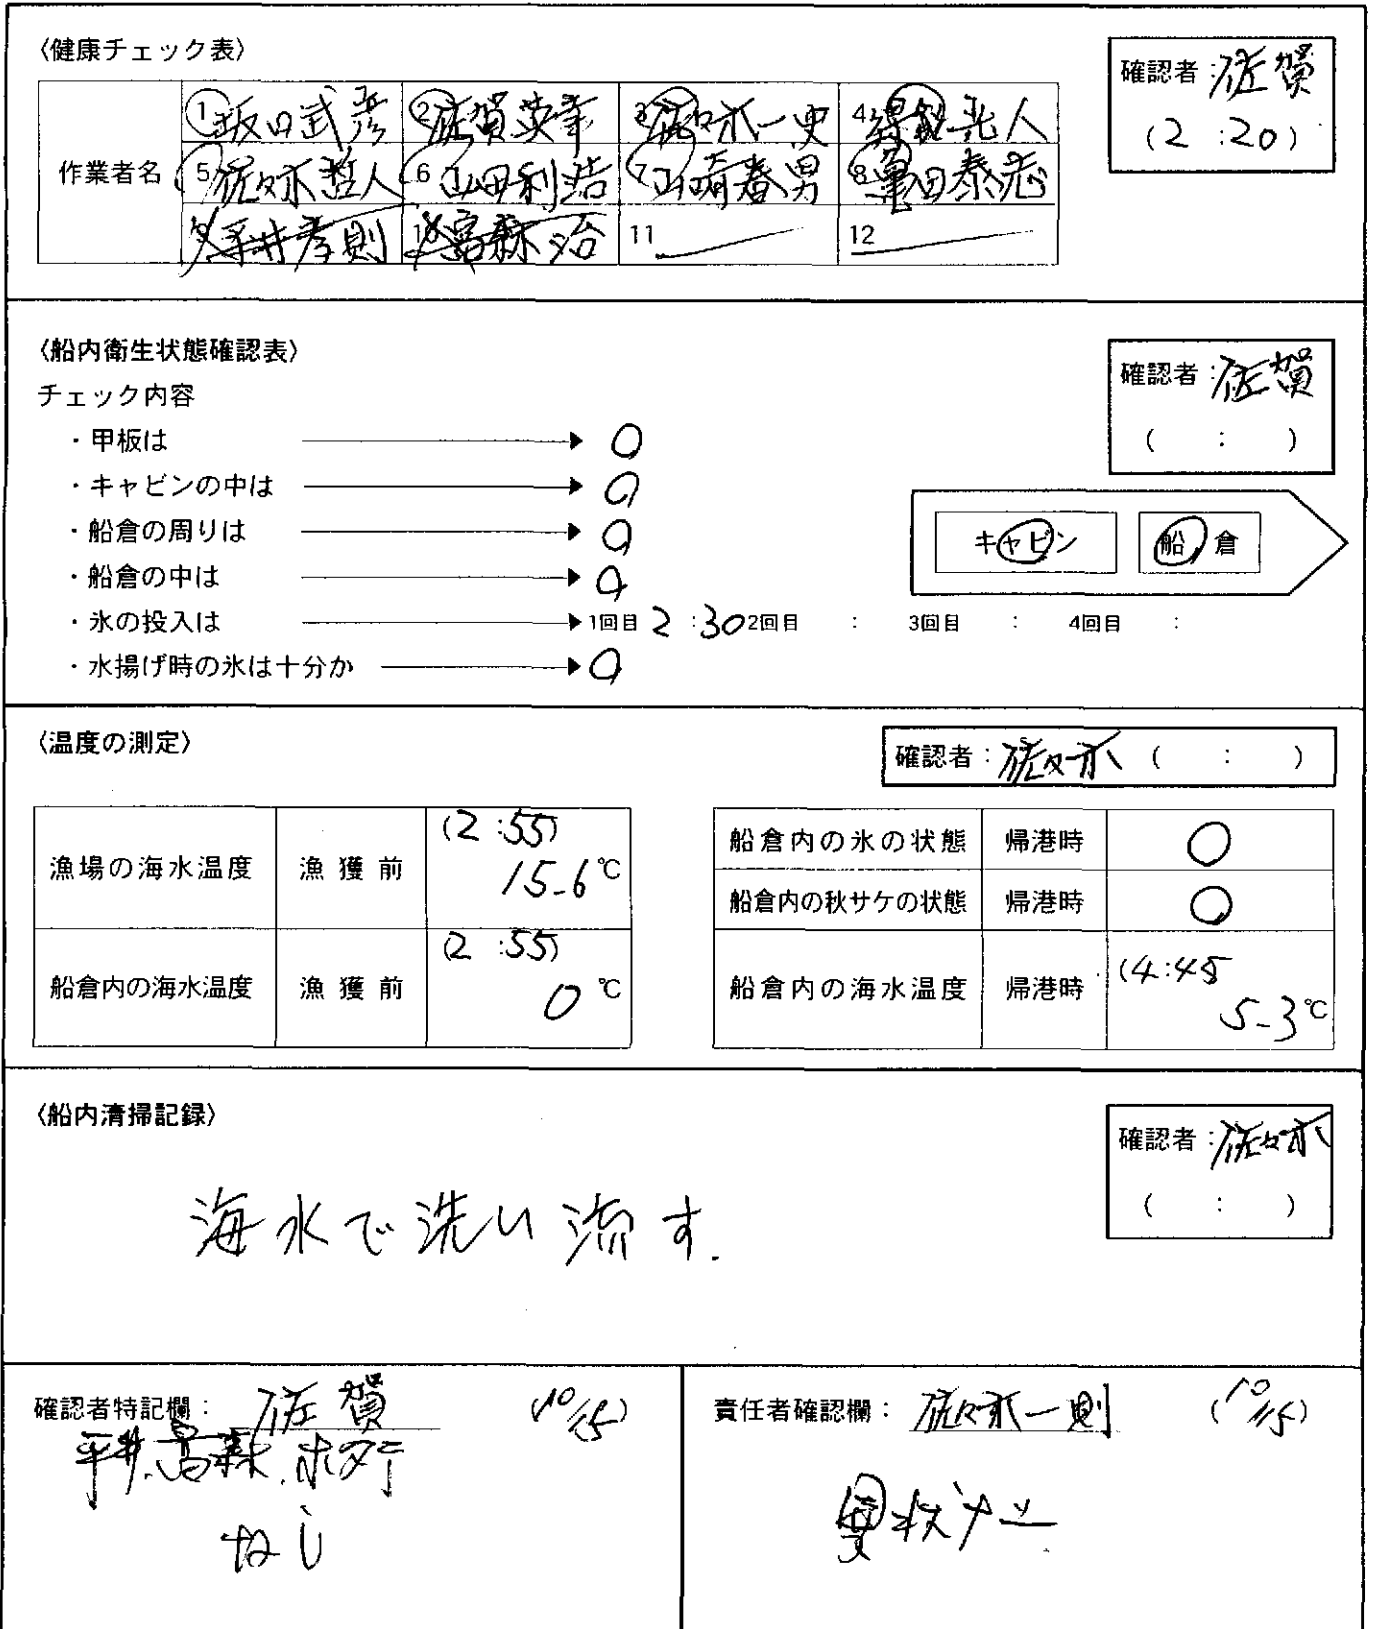 〈健康チェック表〉
確認者：佐賀
(2:20)
作業者名
①坂田武彦 ②佐賀英幸 3佐々木一史 4光人
5佐々木哲人 6山田利浩 7山崎春男 8亀田泰志
9平井孝則 10高森治 11 12
〈船内衛生状態確認表〉
確認者：佐賀
( : )
チェック内容
・甲板は ○
・キャビンの中は ○
・船倉の周りは ○
キャビン 船倉
・船倉の中は ○
・氷の投入は 1回目 2:30 2回目 : 3回目 : 4回目 :
・水揚げ時の氷は十分か ○
〈温度の測定〉
確認者：佐々木 ( : )
漁場の海水温度 漁獲前 (2:55) 15.6℃
船倉内の海水温度 漁獲前 (2:55) 0℃
船倉内の氷の状態 帰港時 ○
船倉内の秋サケの状態 帰港時 ○
船倉内の海水温度 帰港時 (4:45 5.3℃
〈船内清掃記録〉
確認者：佐々木
( : )
海水で洗い流す.
確認者特記欄：佐賀 (10/15)
平井、高森、ホタテ
なし
責任者確認欄：佐々木一則 (10/15)
異状ナシ